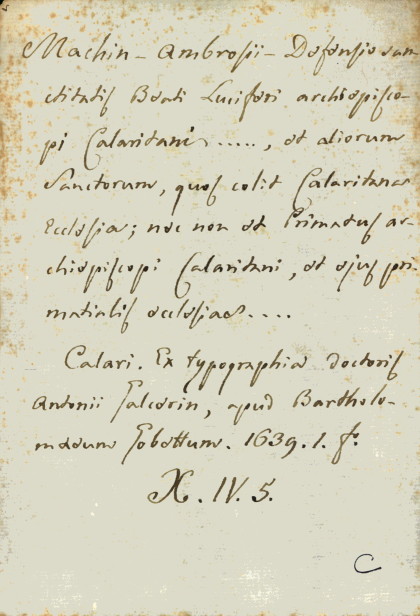 Machin - Ambrosii - Defensio san-
ctitatis Beati Luciferi archiepisco-
pi Calaritani ....., et aliorum
Sanctorum, quos colit Calaritana
Ecclesia; nec non et Primatus ar-
chiepiscopi Calaritani, et ejus pri
matialis ecclesiae ....
Calari. Ex typographia doctoris
Antonii Galcerin, apud Bartholo-
maeum Gobettum. 1639. 1. f.º
X. IV. 5.
C